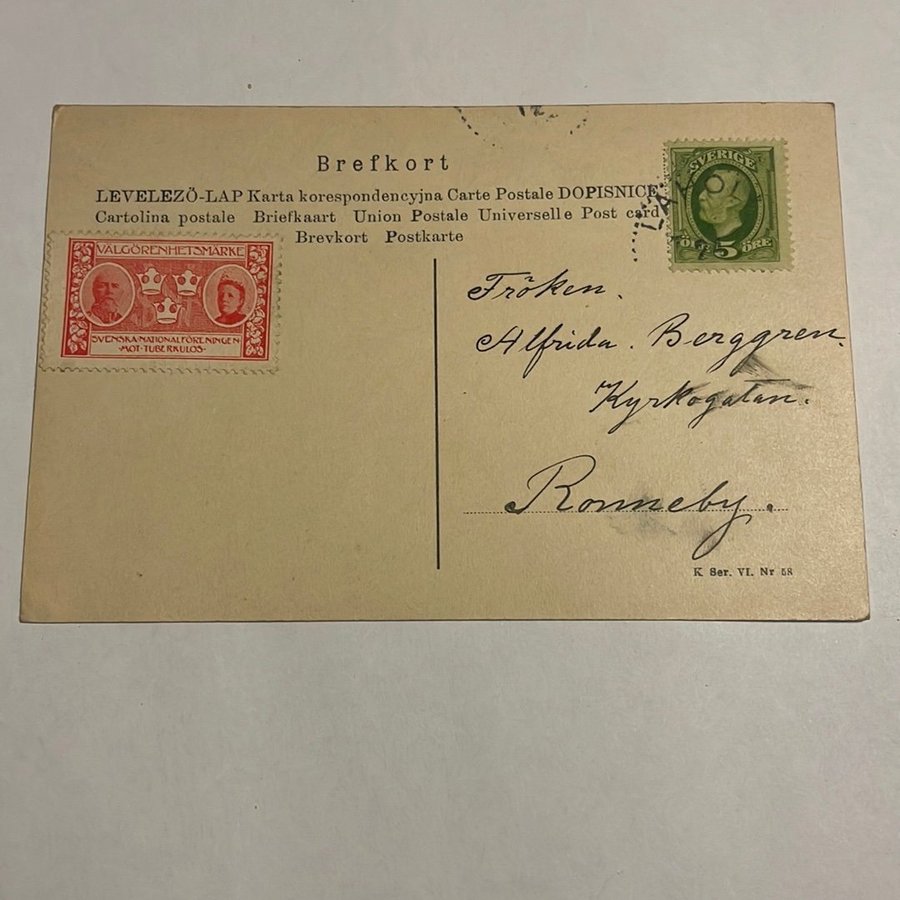 Brefkort
LEVELEZÖ-LAP Karta korespondencyjna Carte Postale DOPISNICE
Cartolina postale Briefkaart Union Postale Universelle Post card
Brevkort Postkarte
VÄLGÖRENHETSMÄRKE
SVENSKA·NATIONALFÖRENINGEN·
·MOT·TUBERKULOS·
SVERIGE
ÖRE 5 ÖRE
Fröken.
Alfrida. Berggren.
Kyrkogatan.
Ronneby.
K Ser. VI. Nr 58